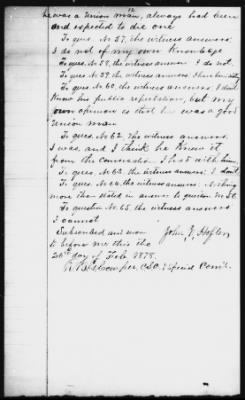 he was a Union man, always had been
and expected to die one
To ques. No 57, the witness answers,
I do not of my own knowledge
To ques. No 58, the witness answers I do not.
To ques. No 59, the witness answers
To ques. No 60, the witness answers, I don't
Know his public reputation, but my
own opinion is that he was a good
Union man
To ques. No 62. The witness answers
I was, and I think he knew it
from the conversation I had with him
To ques. No 63. the witness answers I don't
To ques. No 64. the witness answers. Nothing
more than stated in answer to question No 56
To question No 65. the witness answers
I cannot
Subscribed and sworn John
to before me this the
20th day of Feb. 1878.
C.S.C. & Special Com'r.